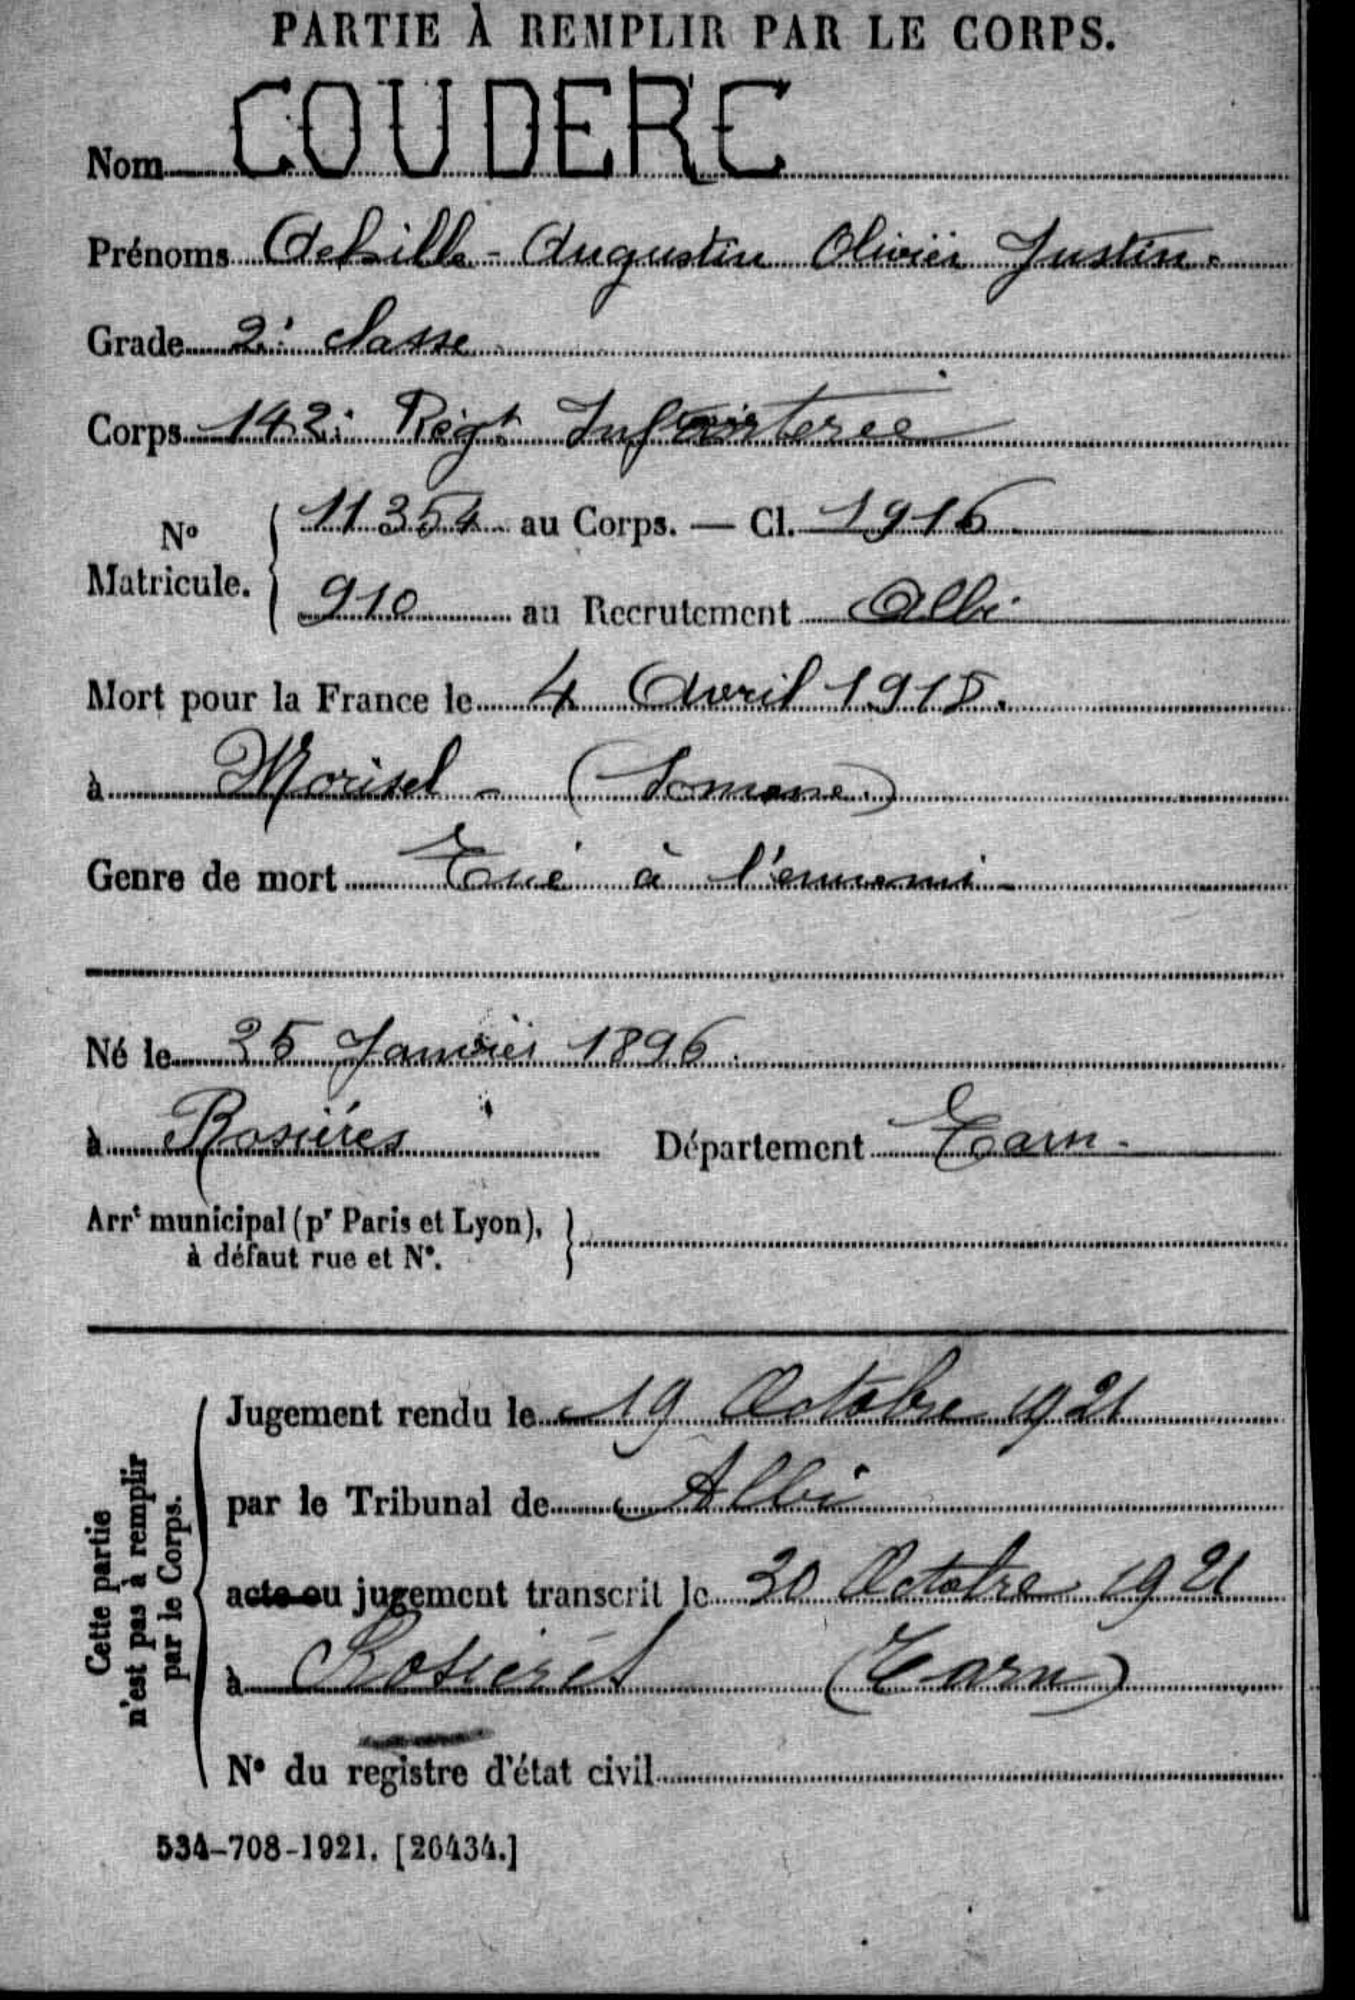 PARTIE À REMPLIR PAR LE CORPS.
Nom COUDERC
Prénoms Achille - Augustin Olivier Justin.
Grade 2e classe
Corps 142e Régt Infanterie
No Matricule. { 11354 au Corps. — Cl. 1916
910 au Recrutement Albi
Mort pour la France le 4 Avril 1918.
à Morisel - (Somme)
Genre de mort Tué à l'ennemi
Né le 25 Janvier 1896.
à Rosières Département Tarn.
Arrt municipal (pr Paris et Lyon), }
à défaut rue et No.
Cette partie
n'est pas à remplir
par le Corps.
Jugement rendu le 19 Octobre 1921
par le Tribunal de Albi
acte ou jugement transcrit le 30 Octobre 1921
à Rosières (Tarn)
No du registre d'état civil
534-708-1921. [26434.]